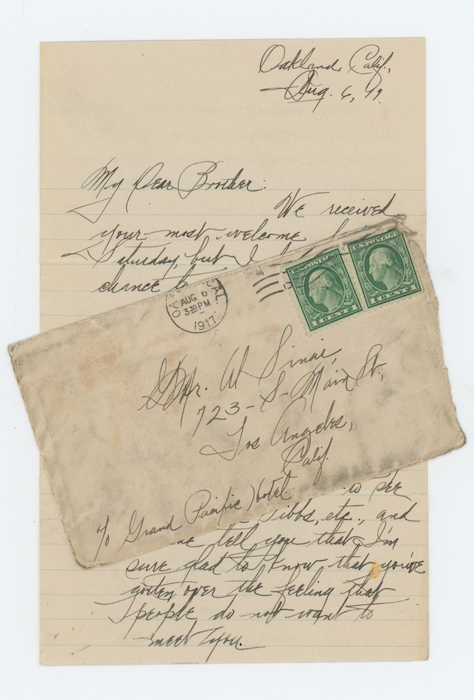 Oakland, Calif.,
Aug. 6, 17.
My Dear Brother:
We received
your most welcome
Saturday, but I
chance to
OAKLAND CAL.
AUG 6
330 PM
1917
U.S. POSTAGE
1 CENT 1
U.S. POSTAGE
1 CENT 1
Mr. Al Sinai,
723- S- Main St.,
Los Angeles,
Calif.
c/o Grand Pacific Hotel.
to see
Tibbs, etc., and
me tell you that I'm
sure glad to know that you've
gotten over the feeling that
people do not want to
meet you.